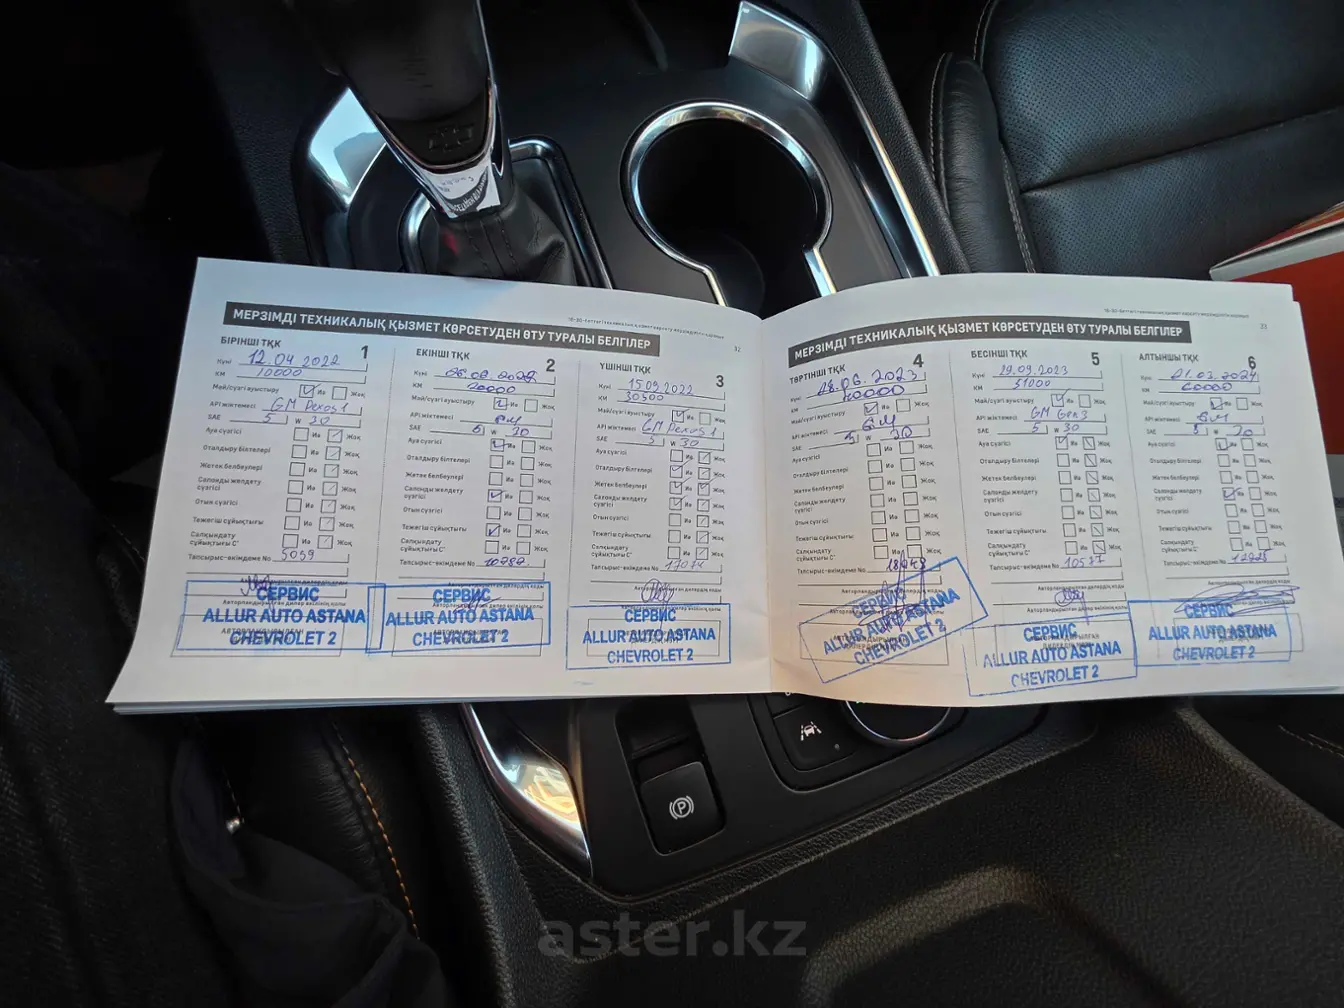 МЕРЗІМДІ ТЕХНИКАЛЫҚ ҚЫЗМЕТ КӨРСЕТУДЕН ӨТУ ТУРАЛЫ БЕЛГІЛЕР
32
БІРІНШІ ТҚК 1
Күні 12.04.2022
КМ 10000
Май/сүзгі ауыстыру Иә Жоқ
API жіктемесі GM Dexos1
SAE 5 w 30
Ауа сүзгісі Иә Жоқ
Оталдыру білтелері Иә Жоқ
Жетек белбеулері Иә Жоқ
Салонды желдету сүзгісі Иә Жоқ
Отын сүзгісі Иә Жоқ
Тежегіш сұйықтығы Иә Жоқ
Салқындату сұйықтығы С° Иә Жоқ
Тапсырыс-өкімдеме No 5059
СЕРВИС
ALLUR AUTO ASTANA
CHEVROLET 2
ЕКІНШІ ТҚК 2
Күні
КМ 20000
Май/сүзгі ауыстыру Иә Жоқ
API жіктемесі GM
SAE 5 w 30
Ауа сүзгісі Иә Жоқ
Оталдыру білтелері Иә Жоқ
Жетек белбеулері Иә Жоқ
Салонды желдету сүзгісі Иә Жоқ
Отын сүзгісі Иә Жоқ
Тежегіш сұйықтығы Иә Жоқ
Салқындату сұйықтығы С° Иә Жоқ
Тапсырыс-өкімдеме No 10782
СЕРВИС
ALLUR AUTO ASTANA
CHEVROLET 2
ҮШІНШІ ТҚК 3
Күні 15.09.2022
КМ 30500
Май/сүзгі ауыстыру Иә Жоқ
API жіктемесі GM Dexos1
SAE 5 w 30
Ауа сүзгісі Иә Жоқ
Оталдыру білтелері Иә Жоқ
Жетек белбеулері Иә Жоқ
Салонды желдету сүзгісі Иә Жоқ
Отын сүзгісі Иә Жоқ
Тежегіш сұйықтығы Иә Жоқ
Салқындату сұйықтығы С° Иә Жоқ
Тапсырыс-өкімдеме No 17074
СЕРВИС
ALLUR AUTO ASTANA
CHEVROLET 2
МЕРЗІМДІ ТЕХНИКАЛЫҚ ҚЫЗМЕТ КӨРСЕТУДЕН ӨТУ ТУРАЛЫ БЕЛГІЛЕР
ТӨРТІНШІ ТҚК 4
Күні 28.06.2023
КМ 40000
Май/сүзгі ауыстыру Иә Жоқ
API жіктемесі GM
SAE 5 w 30
Ауа сүзгісі Иә Жоқ
Оталдыру білтелері Иә Жоқ
Жетек белбеулері Иә Жоқ
Салонды желдету сүзгісі Иә Жоқ
Отын сүзгісі Иә Жоқ
Тежегіш сұйықтығы Иә Жоқ
Салқындату сұйықтығы С° Иә Жоқ
Тапсырыс-өкімдеме No
СЕРВИС
ALLUR AUTO ASTANA
CHEVROLET 2
БЕСІНШІ ТҚК 5
Күні 29.09.2023
КМ 51000
Май/сүзгі ауыстыру Иә Жоқ
API жіктемесі GM Gen3
SAE 5 w 30
Ауа сүзгісі Иә Жоқ
Оталдыру білтелері Иә Жоқ
Жетек белбеулері Иә Жоқ
Салонды желдету сүзгісі Иә Жоқ
Отын сүзгісі Иә Жоқ
Тежегіш сұйықтығы Иә Жоқ
Салқындату сұйықтығы С° Иә Жоқ
Тапсырыс-өкімдеме No 10577
СЕРВИС
ALLUR AUTO ASTANA
CHEVROLET 2
АЛТЫНШЫ ТҚК 6
Күні 21.03.2024
КМ 60000
Май/сүзгі ауыстыру Иә Жоқ
API жіктемесі GM
SAE 5 w 30
Ауа сүзгісі Иә Жоқ
Оталдыру білтелері Иә Жоқ
Жетек белбеулері Иә Жоқ
Салонды желдету сүзгісі Иә Жоқ
Отын сүзгісі Иә Жоқ
Тежегіш сұйықтығы Иә Жоқ
Салқындату сұйықтығы С° Иә Жоқ
Тапсырыс-өкімдеме No
СЕРВИС
ALLUR AUTO ASTANA
CHEVROLET 2
aster.kz